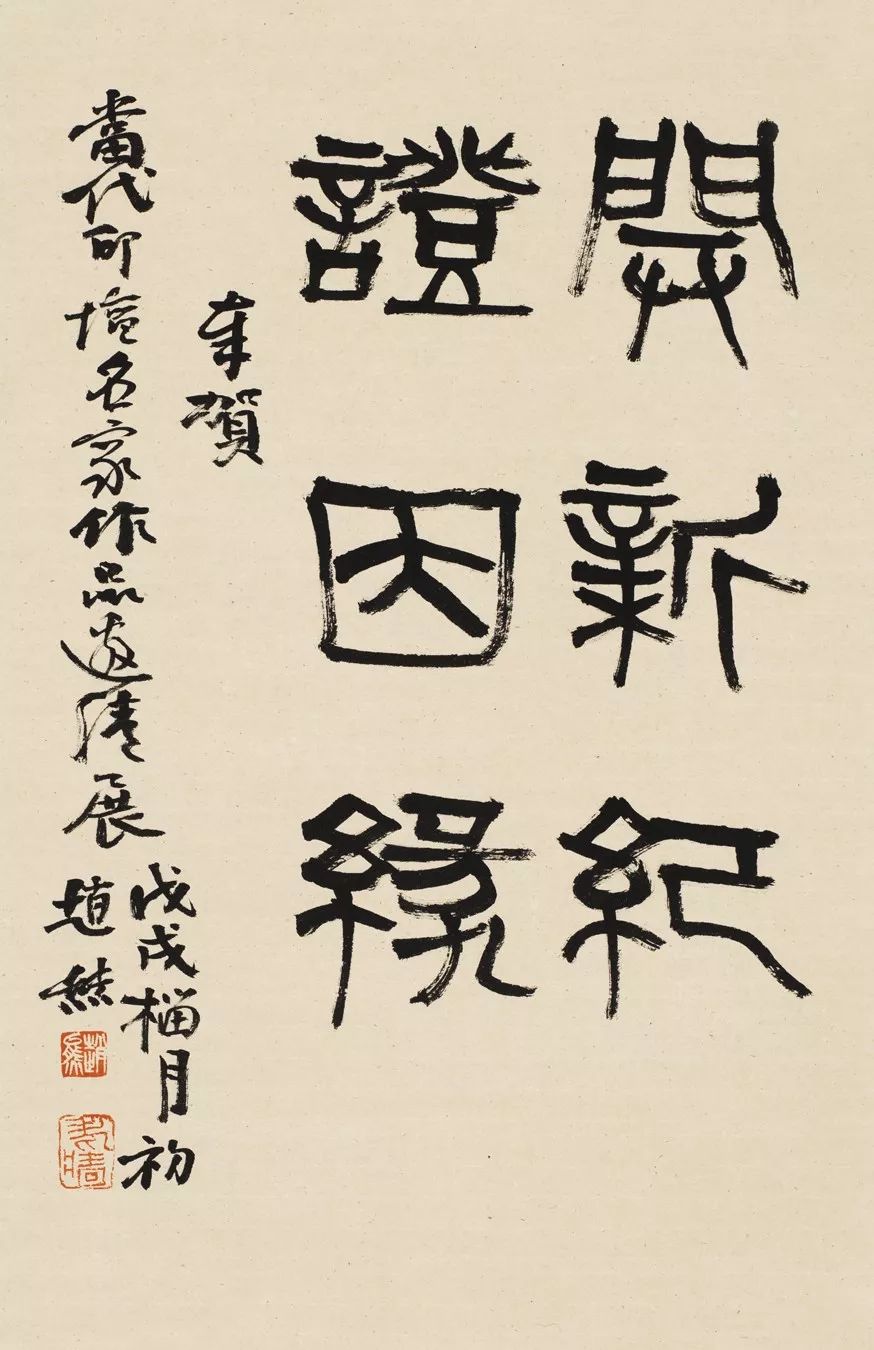 開新紀
證因緣
奉賀
當代印壇名家作品邀請展
戊戌榴月初
趙熊